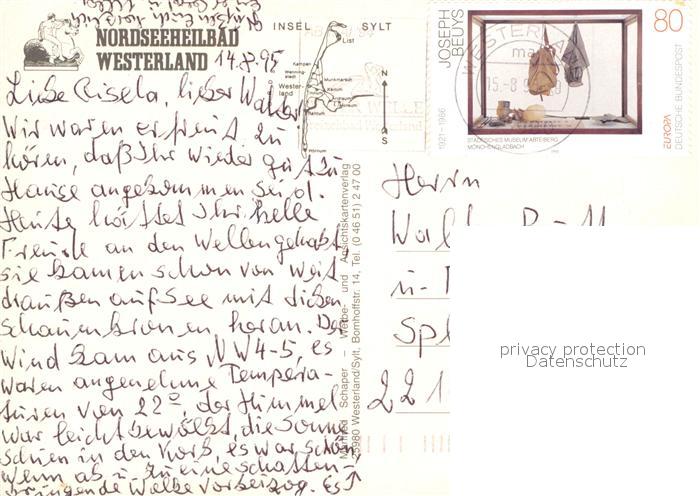 NORDSEEHEILBAD
WESTERLAND
INSEL SYLT
List
Kampen
Munkmarsch
Wester-
land
Keitum
Rantum
Hörnum
N
S
14.8.95
Liebe Gisela, lieber Walter
Wir waren erfreut zu
hören, daß Ihr wieder gut zu
Hause angekommen seid.
Heute hättet Ihr helle
Freude an den Wellen gehabt
sie kamen schon von weit
draußen auf See mit dicken
Schaumkronen heran. Der
Wind kam aus NW 4-5, es
waren angenehme Tempera-
turen von 22°, der Himmel
war leicht bewölkt, die Sonne
schien in den Korb, es war schön
wenn ab u. zu eine schatten-
bringende Wolke vorbeizog. Es
Manfred Schaper – Werbe- und Ansichtskartenverlag
25980 Westerland/Sylt, Bomhoffstr. 14, Tel. (0 46 51) 2 47 00
JOSEPH
BEUYS
1921-1986
80
STÄDTISCHES MUSEUM ABTEIBERG
MÖNCHENGLADBACH
EUROPA
DEUTSCHE BUNDESPOST
WESTER
15.-8
Herrn
Wal
u.
Spl
221
privacy protection
Datenschutz